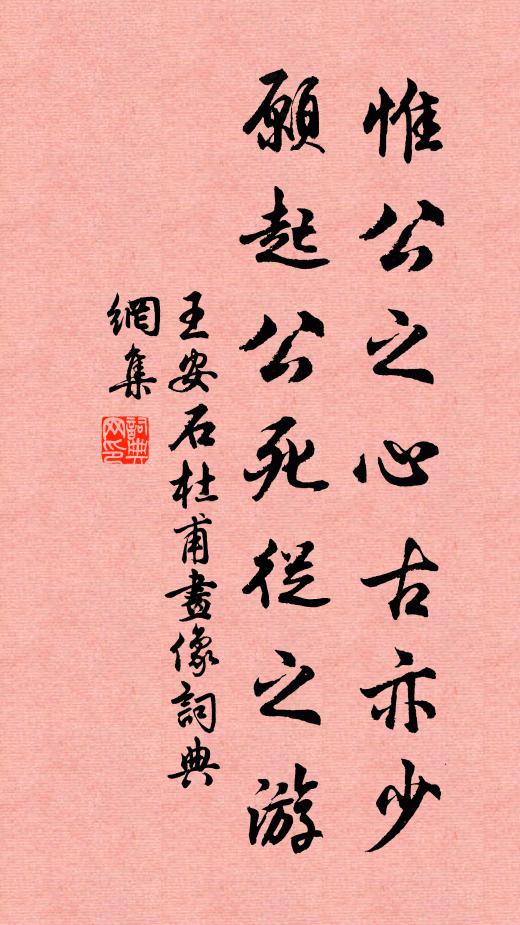 惟公之心古亦少
願起公死從之游
王安石杜甫畫像詞典
網集
詞典
网印